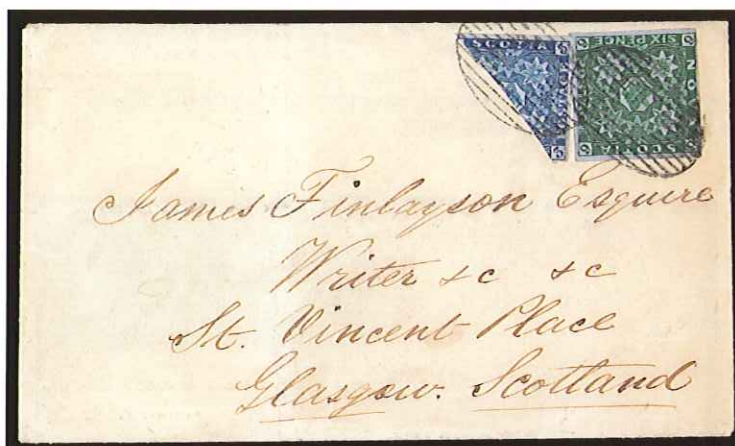 SCOTIA
SIX PENCE
NO
SCOTIA
James Finlayson Esquire
Writer &c &c
St. Vincent Place
Glasgow. Scotland